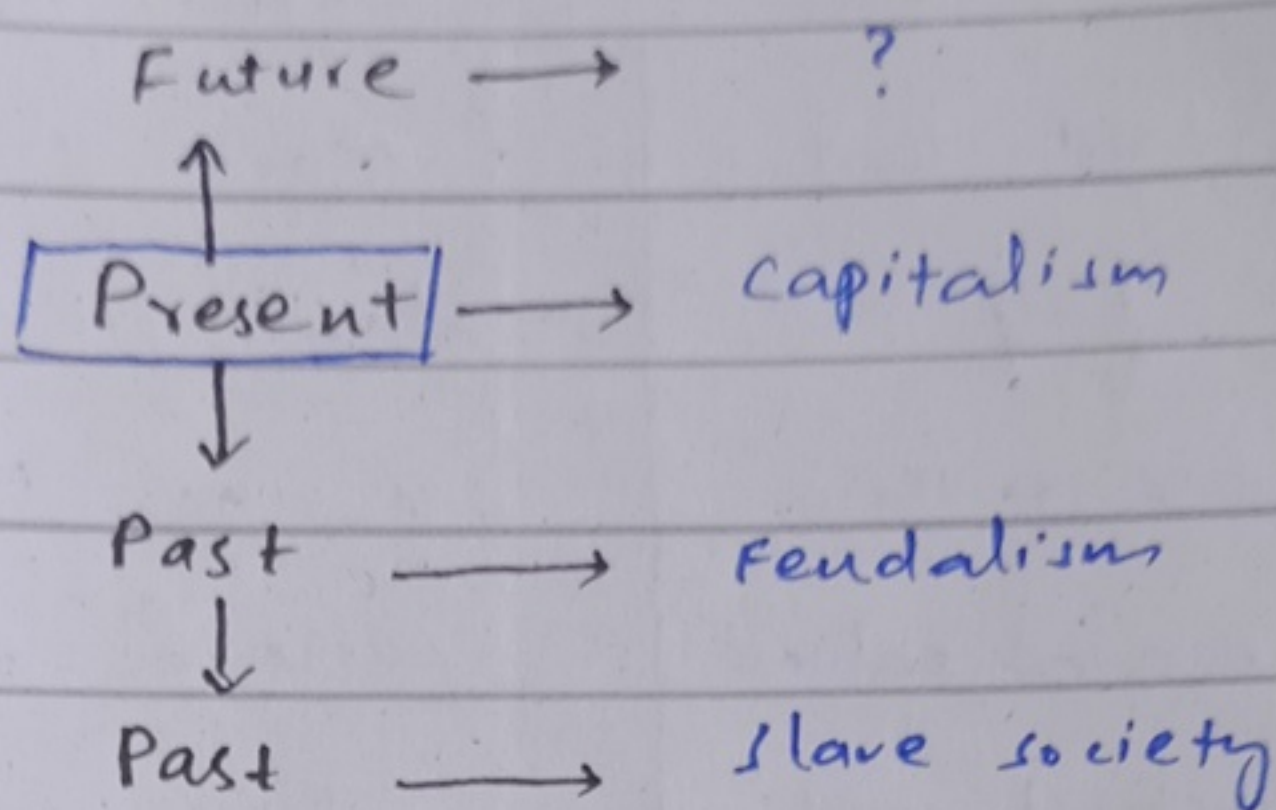 Future → ?
↑
Present → Capitalism
↓
Past → Feudalism
↓
Past → Slave society